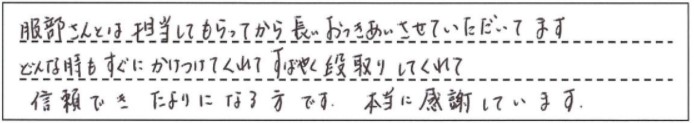 服部さんとは担当してもらってから長いおつきあいさせていただいてます
どんな時もすぐにかけつけてくれてすばやく段取りしてくれて
信頼でき たよりになる方です. 本当に感謝しています.